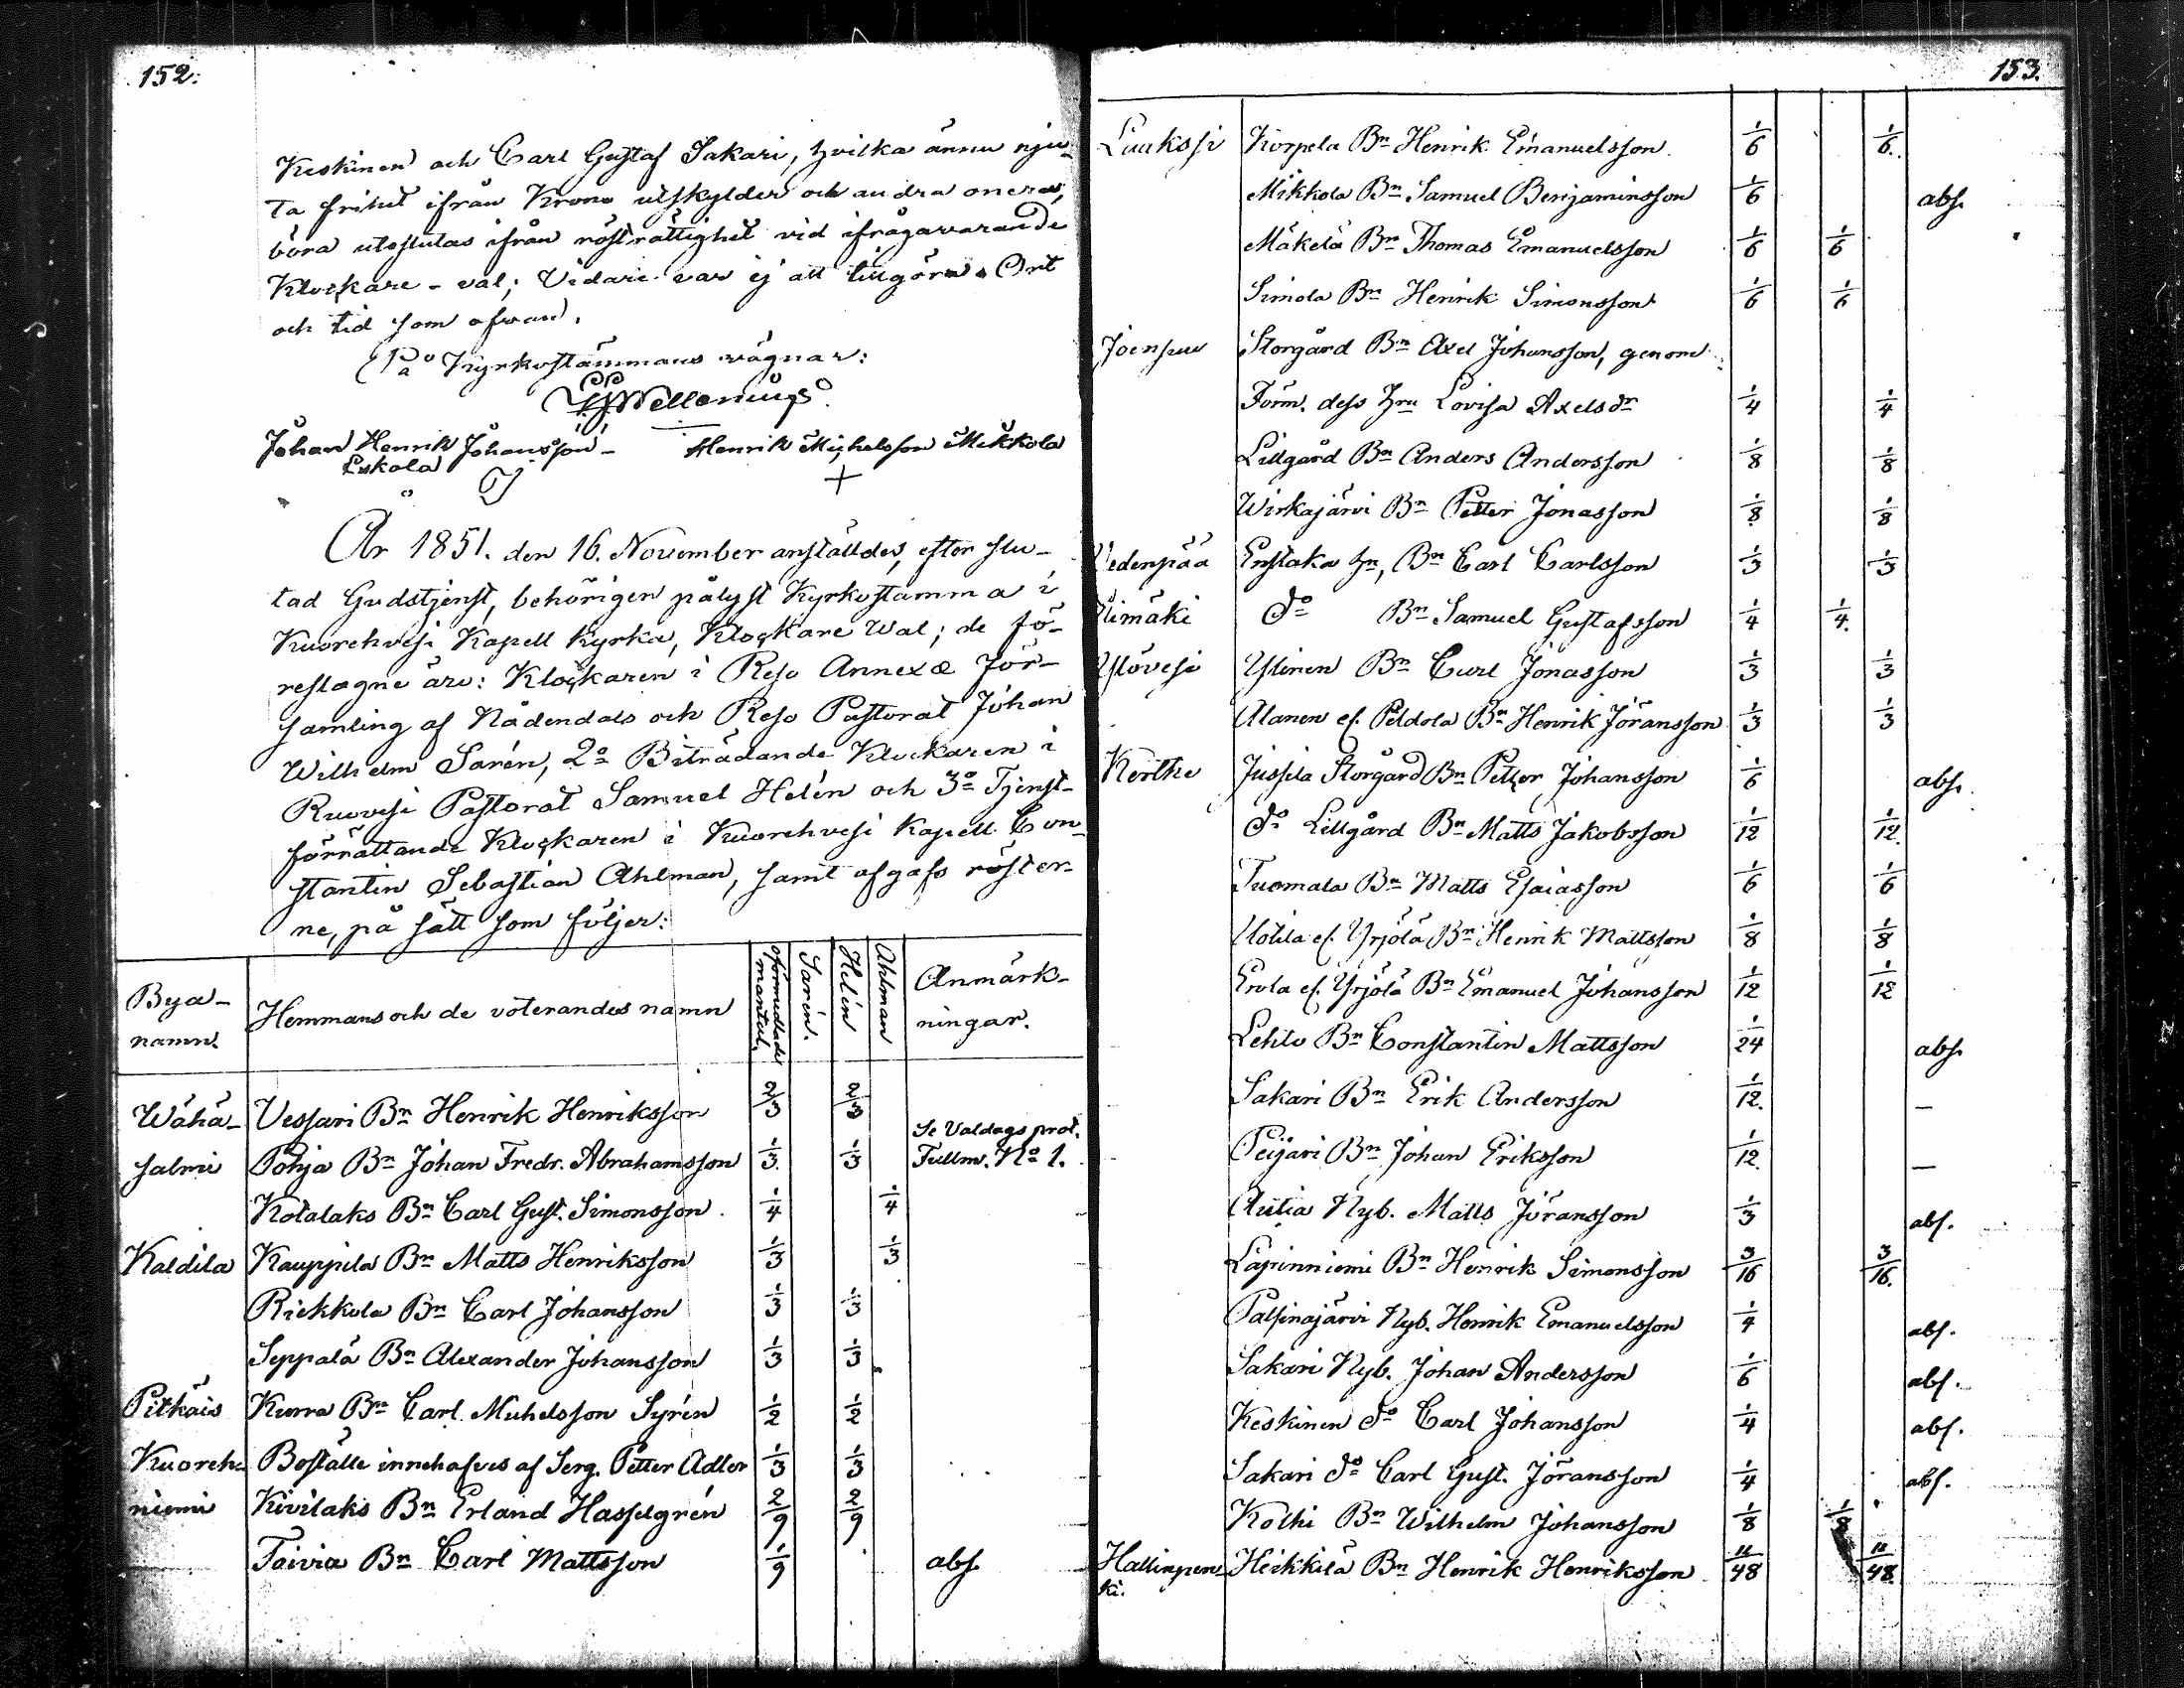 152.
Keskinen och Carl Gustaf Sakari, hvilka ännu nju-
ta frihet ifrån Krono utskylder och andra onera,
böra uteslutas ifrån rösträttighet vid ifrågavarande
Klockare-val; Vidare var ej att tillgöra. Ort
och tid som ofvan.
På Kyrkostämmans vägnar:
Johan Henrik Johansson Henrik Michelsson Mikkola
Eskola
År 1851. den 16. November anställdes, efter slu-
tad Gudstjenst, behörigen pålyst Kyrkostamma i
Kuorehvesi Kapell kyrka, Klockare Wal; de fö-
reslagne äro: Klockaren i Reso Annexæ För-
samling af Nådendals och Reso Pastorat Johan
Wilhelm Sarén, 2o Biträdande Klockaren i
Ruovesi Pastorat Samuel Helén och 3o Tjenst-
förrättande Klockaren i Kuorehvesi Kapell Con-
stantin Sebastian Ahlman, samt afgafs röster-
ne, på sätt som följer:
Bya-
namn. Hemmans och de voterandes namn oförmedlade mantal. Sarén. Helén Ahlman Anmärk-
ningar.
Wähä- Vessari Bn Henrik Henriksson 2/3 2/3
salmi Pohja Bn Johan Fredr. Abrahamsson 1/3. 1/3 Se Valdags prot. Fullm. No 1.
Kotalaks Bn Carl Gust. Simonsson 1/4 1/4
Kaldila Kauppila Bn Matts Henriksson 1/3 1/3
Riekkola Bn Carl Johansson 1/3 1/3
Seppälä Bn Alexander Johansson 1/3 1/3
Pitkäis Kurra Bn Carl Michelsson Syrén 1/2 1/2
Kuoreh- Boställe innehafves af Serg. Petter Adler 1/3 1/3
niemi Kivilaks Bn Erland Hasselgrén 2/9 2/9
Toivia Bn Carl Mattsson 1/9 abs.
153.
Luukssi Korpela Bn Henrik Emanuelsson 1/6 1/6.
Mikkola Bn Samuel Benjaminsson 1/6 abs.
Mäkelä Bn Thomas Emanuelsson 1/6 1/6
Simola Bn Henrik Simonsson 1/6 1/6
Joensuu Storgård Bn Axel Johansson, genom
Förm. dess hru Lovisa Axelsdr 1/4 1/4
Lillgård Bn Anders Andersson 1/8 1/8
Wirkajärvi Bn Petter Jonasson 1/8 1/8
Vedenpää Enstaka hn, Bn Carl Carlsson 1/3 1/3
do Bn Samuel Gustafsson 1/4 1/4.
Ylövesi Ylinen Bn Carl Jonasson 1/3 1/3
Alanen el. Peldola Bn Henrik Jöransson 1/3 1/3
Kertke Jussila Storgård Bn Petter Johansson 1/6 abs.
do Lillgård Bn Matts Jakobsson 1/12 1/12.
Tuomala Bn Matts Esaiasson 1/6 1/6
Uotila el. Yrjölä Bn Henrik Mattsson 1/8 1/8
Erola el. Yrjölä Bn Emanuel Johansson 1/12 1/12
Lehto Bn Constantin Mattsson 1/24 abs.
Sakari Bn Erik Andersson 1/12. —
Peijari Bn Johan Eriksson 1/12. —
Autia Nyb. Matts Jöransson 1/3 abs.
Lapinniemi Bn Henrik Simonsson 3/16 3/16.
Palsinajärvi Nyb. Henrik Emanuelsson 1/4 abs.
Sakari Nyb. Johan Andersson 1/6 abs.
Keskinen do Carl Johansson 1/4 abs.
Sakari do Carl Gust. Jöransson 1/4 abs.
Kolhi Bn Wilhelm Johansson 1/8 1/8
Hallinpen- Heikkilä Bn Henrik Henriksson 11/48 11/48.
ki.